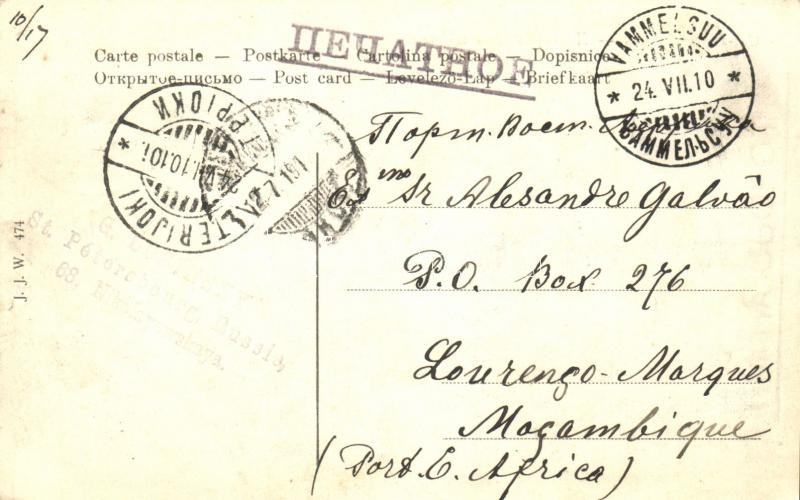 10/17
Carte postale — Postkarte — Cartolina postale — Dopisnice
Открытое-письмо — Post card — Levelező-Lap — Briefkaart
ПЕЧАТНОЕ
VAMMELSUU
* 24.VII.10 *
ВАММЕЛЬСУУ
TERIJOKI
ТЕРІОКИ
Порт. Вост. Африка
Exmo Sr Alesandre Galvão
P.O. Box 276
Lourenço-Marques
Moçambique
(Port. E. Africa)
J. J. W. 474
St. Petersbourg, Russie,
68.